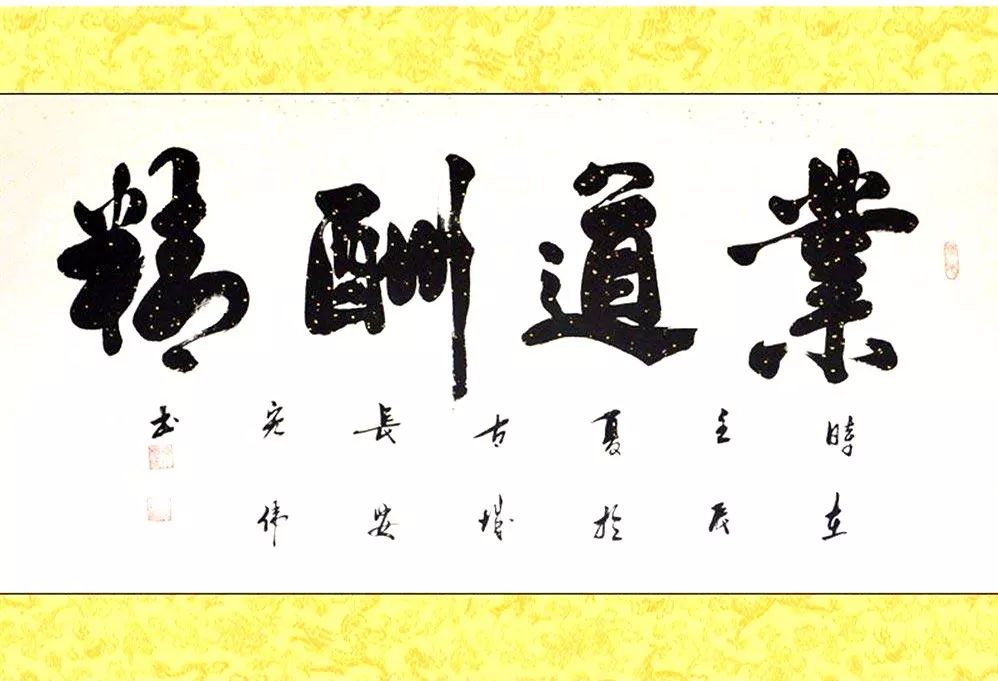 業道酬精
時在
壬辰
夏於
古城
長安
伟
書